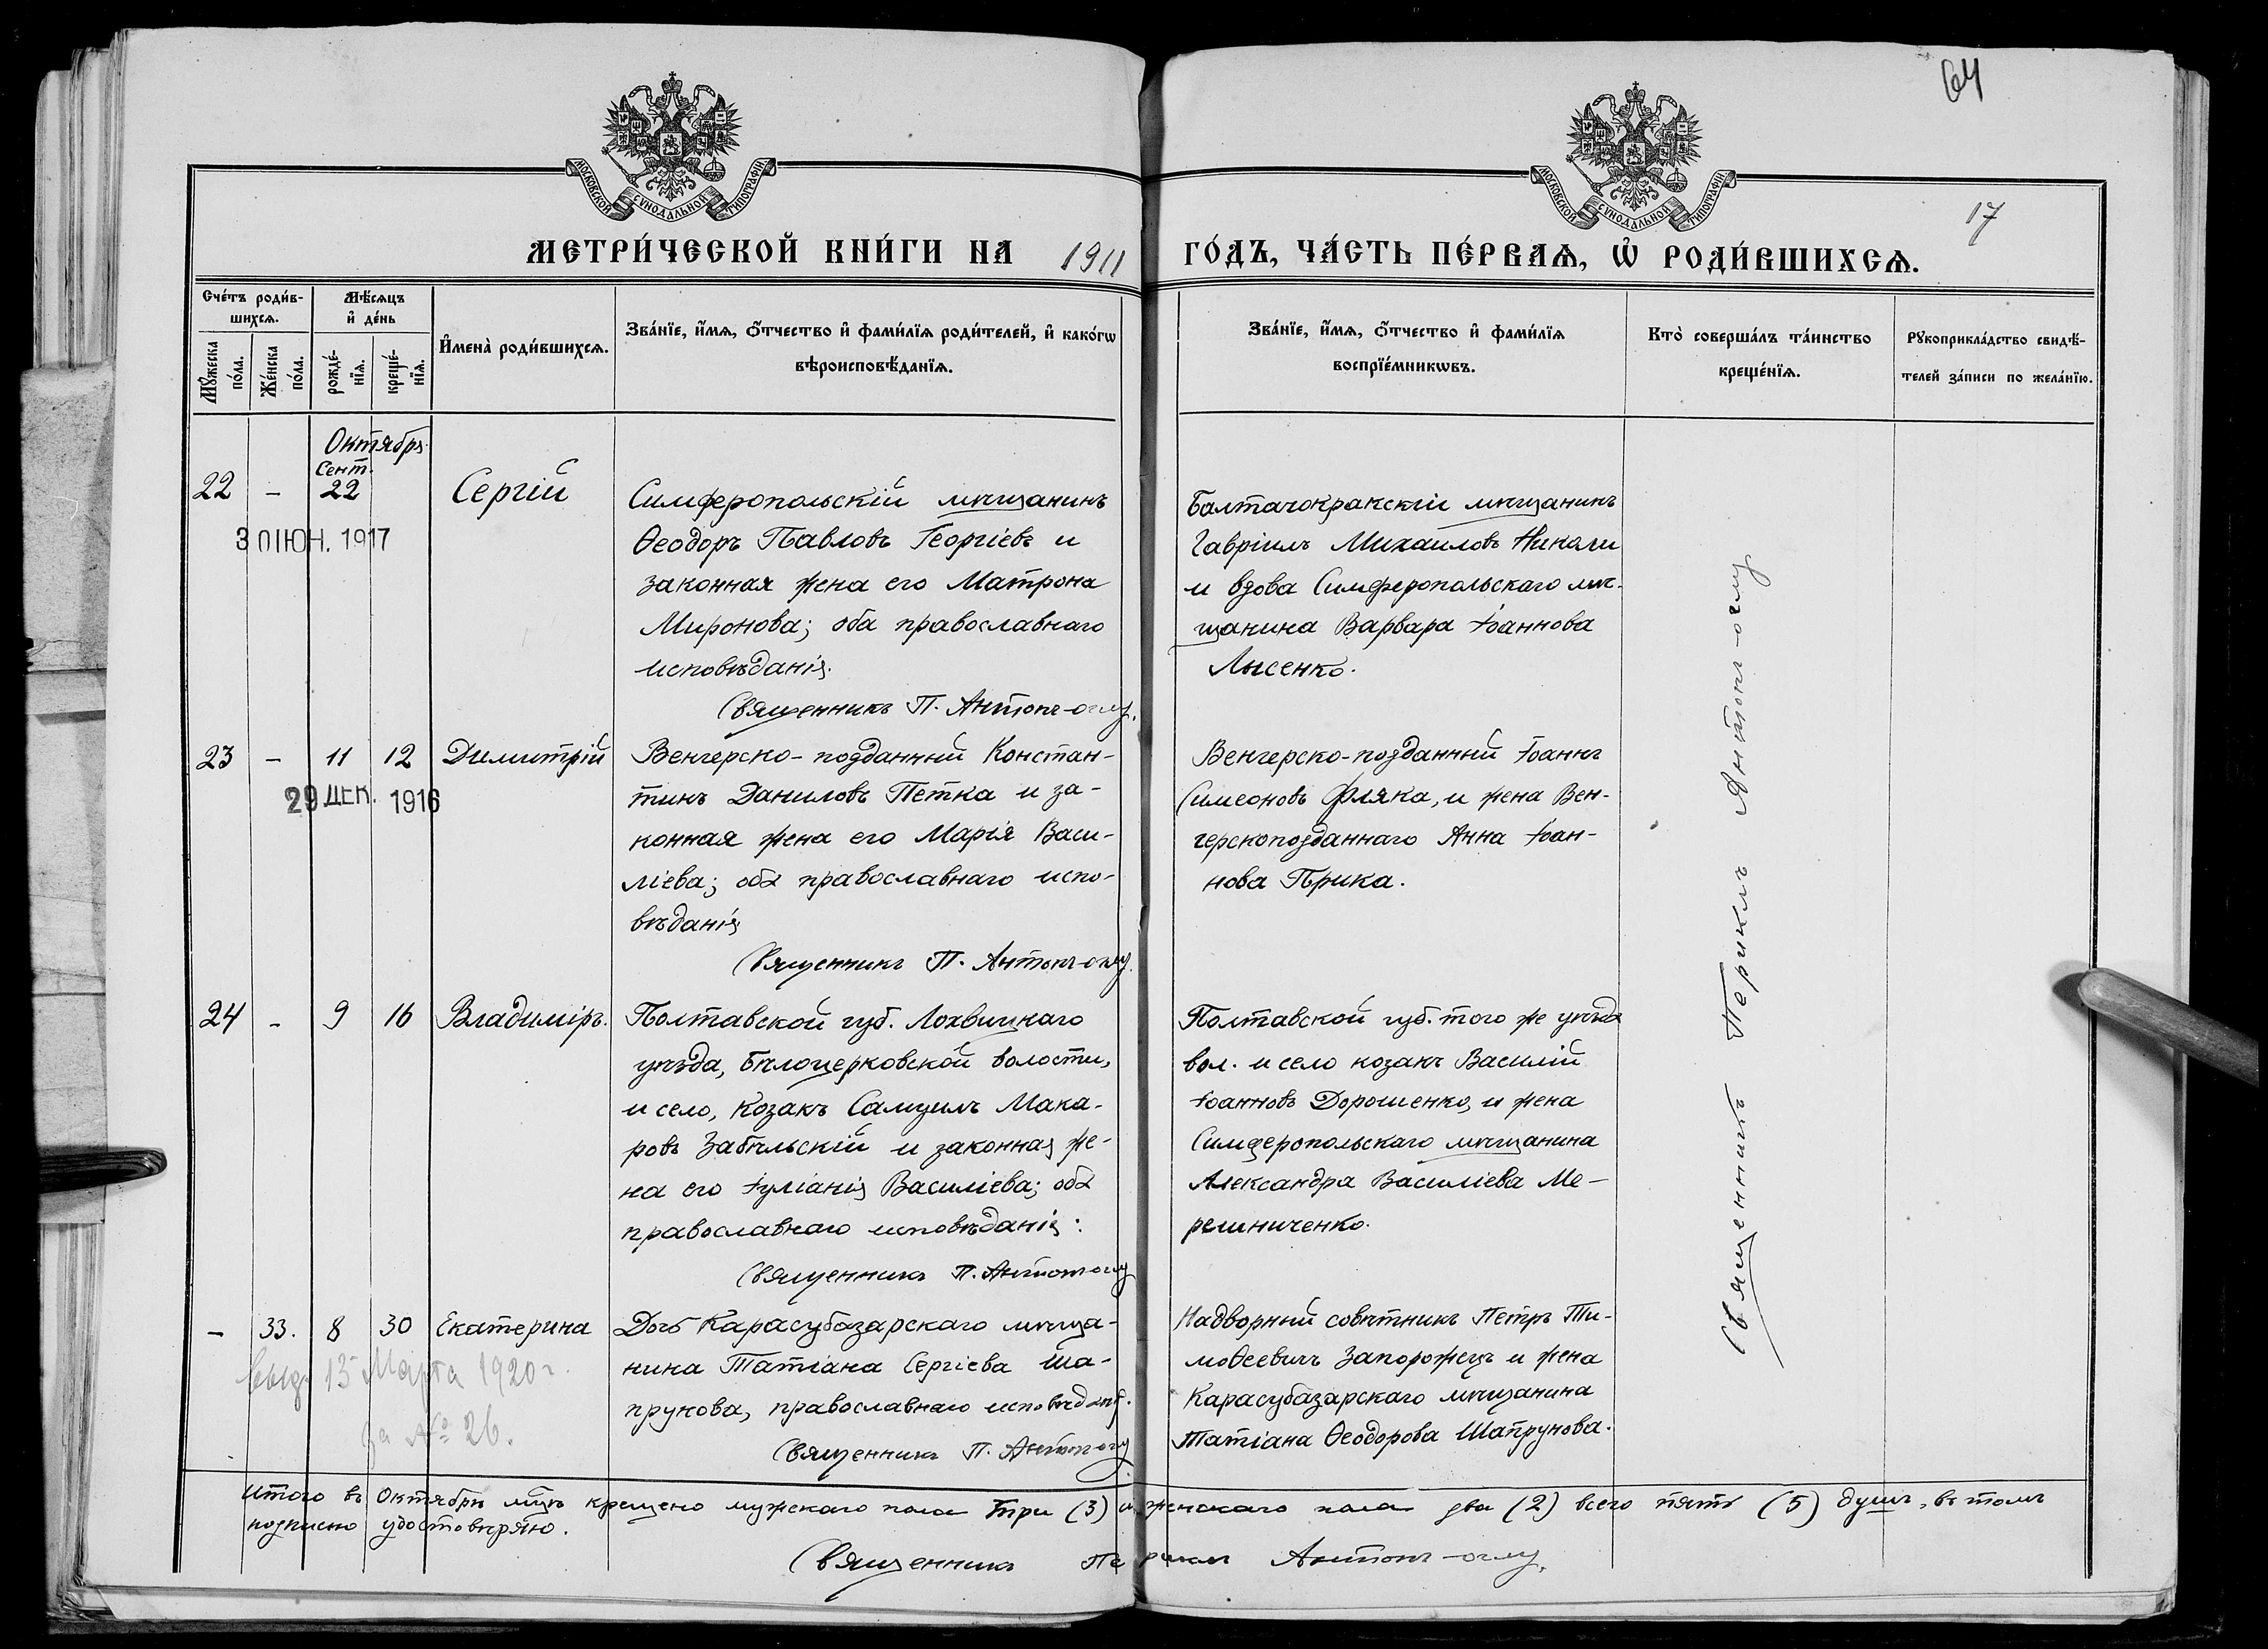 64
17
МОСКОВСКОЙ СѴНОДАЛЬНОЙ ТИПОГРАФІИ
МОСКОВСКОЙ СѴНОДАЛЬНОЙ ТИПОГРАФІИ
МЕТРИ́ЧЕСКОЙ КНИ́ГИ НА 1911 ГО́ДЪ, ЧА́СТЬ ПЕ́РВАѦ, Ѿ РОДИ́ВШИХСѦ.
Сче́тъ роди́в-
шихсѧ.
Мꙋ́жеска
по́ла.
Же́нска
по́ла.
Мѣ́сѧцъ
и҆ де́нь
рожде́-
нїѧ.
креще́-
нїѧ.
И҆мена̀ роди́вшихсѧ.
Зва́нїе, и҆́мѧ, ѻ҆́тчество и҆ фами́лїѧ роди́телей, и҆ како́гѡ
вѣроисповѣ́данїѧ.
Зва́нїе, и҆́мѧ, ѻ҆́тчество и҆ фами́лїѧ
воспрїе́мникѡвъ.
Кто̀ соверша́лъ та́инство
креще́нїѧ.
Рꙋкоприкла́дство свидѣ́-
телей за́писи по жела́нїю.
Октября
Сент.
22 - 22 Сергій
30 ІЮН. 1917
Симферопольскій мѣщанинъ
Ѳеодоръ Павловъ Георгіевъ и
законная жена его Матрона
Миронова; оба православнаго
исповѣданія.
Священникъ П. Антонъ-оглу.
Гавріилъ Михаиловъ Николи
и вдова Симферопольскаго мѣ-
щанина Варвара Іоаннова
Лысенко.
23 - 11 12 Димитрій
29 ДЕК. 1916
Венгерско-подданный Констан-
тинъ Даниловъ Петка и за-
конная жена его Марія Васи-
ліева; оба православнаго испо-
вѣданія
Священникъ П. Антонъ-оглу.
Венгерско-подданный Іоаннъ
Симеоновъ Фляка, и жена Вен-
герскоподданнаго Анна Іоан-
нова Прика.
24 - 9 16 Владиміръ.
Полтавской губ. Лохвицкаго
уѣзда, Бѣлоцерковской волости,
и село, Козакъ Самуилъ Мака-
ровъ Забѣльскій и законная же-
на его Іуліанія Василіева; оба
православнаго исповѣданія.
Священникъ П. Антонъ-оглу
Полтавской губ. того же уѣзда
вол. и село козакъ Василій
Іоанновъ Дорошенко, и жена
Симферопольскаго мѣщанина
Александра Василіева Ме-
решниченко.
- 33. 8 30 Екатерина
выд. 13 Марта 1920 г.
за № 26.
Дочь Карасубазарскаго мѣща-
нина Татіана Сергіева Ша-
прунова, православнаго исповѣданія.
Священникъ П. Антонъ-оглу
Надворный совѣтникъ Петръ Ти-
моѳеевичъ Запорожецъ и жена
Карасубазарскаго мѣщанина
Татіана Ѳеодорова Шапрунова.
Священникъ Периклъ Антонъ-оглу
Итого въ Октябрѣ мцѣ крещено мужскаго пола три (3) и женскаго пола два (2) всего пять (5) душъ, въ томъ
подписью удостовѣряю.
Священникъ Периклъ Антонъ-оглу.